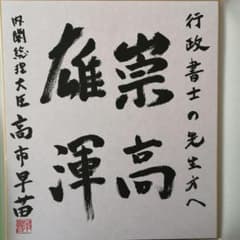 行政書士の先生方へ
崇高
雄渾
内閣総理大臣 高市早苗